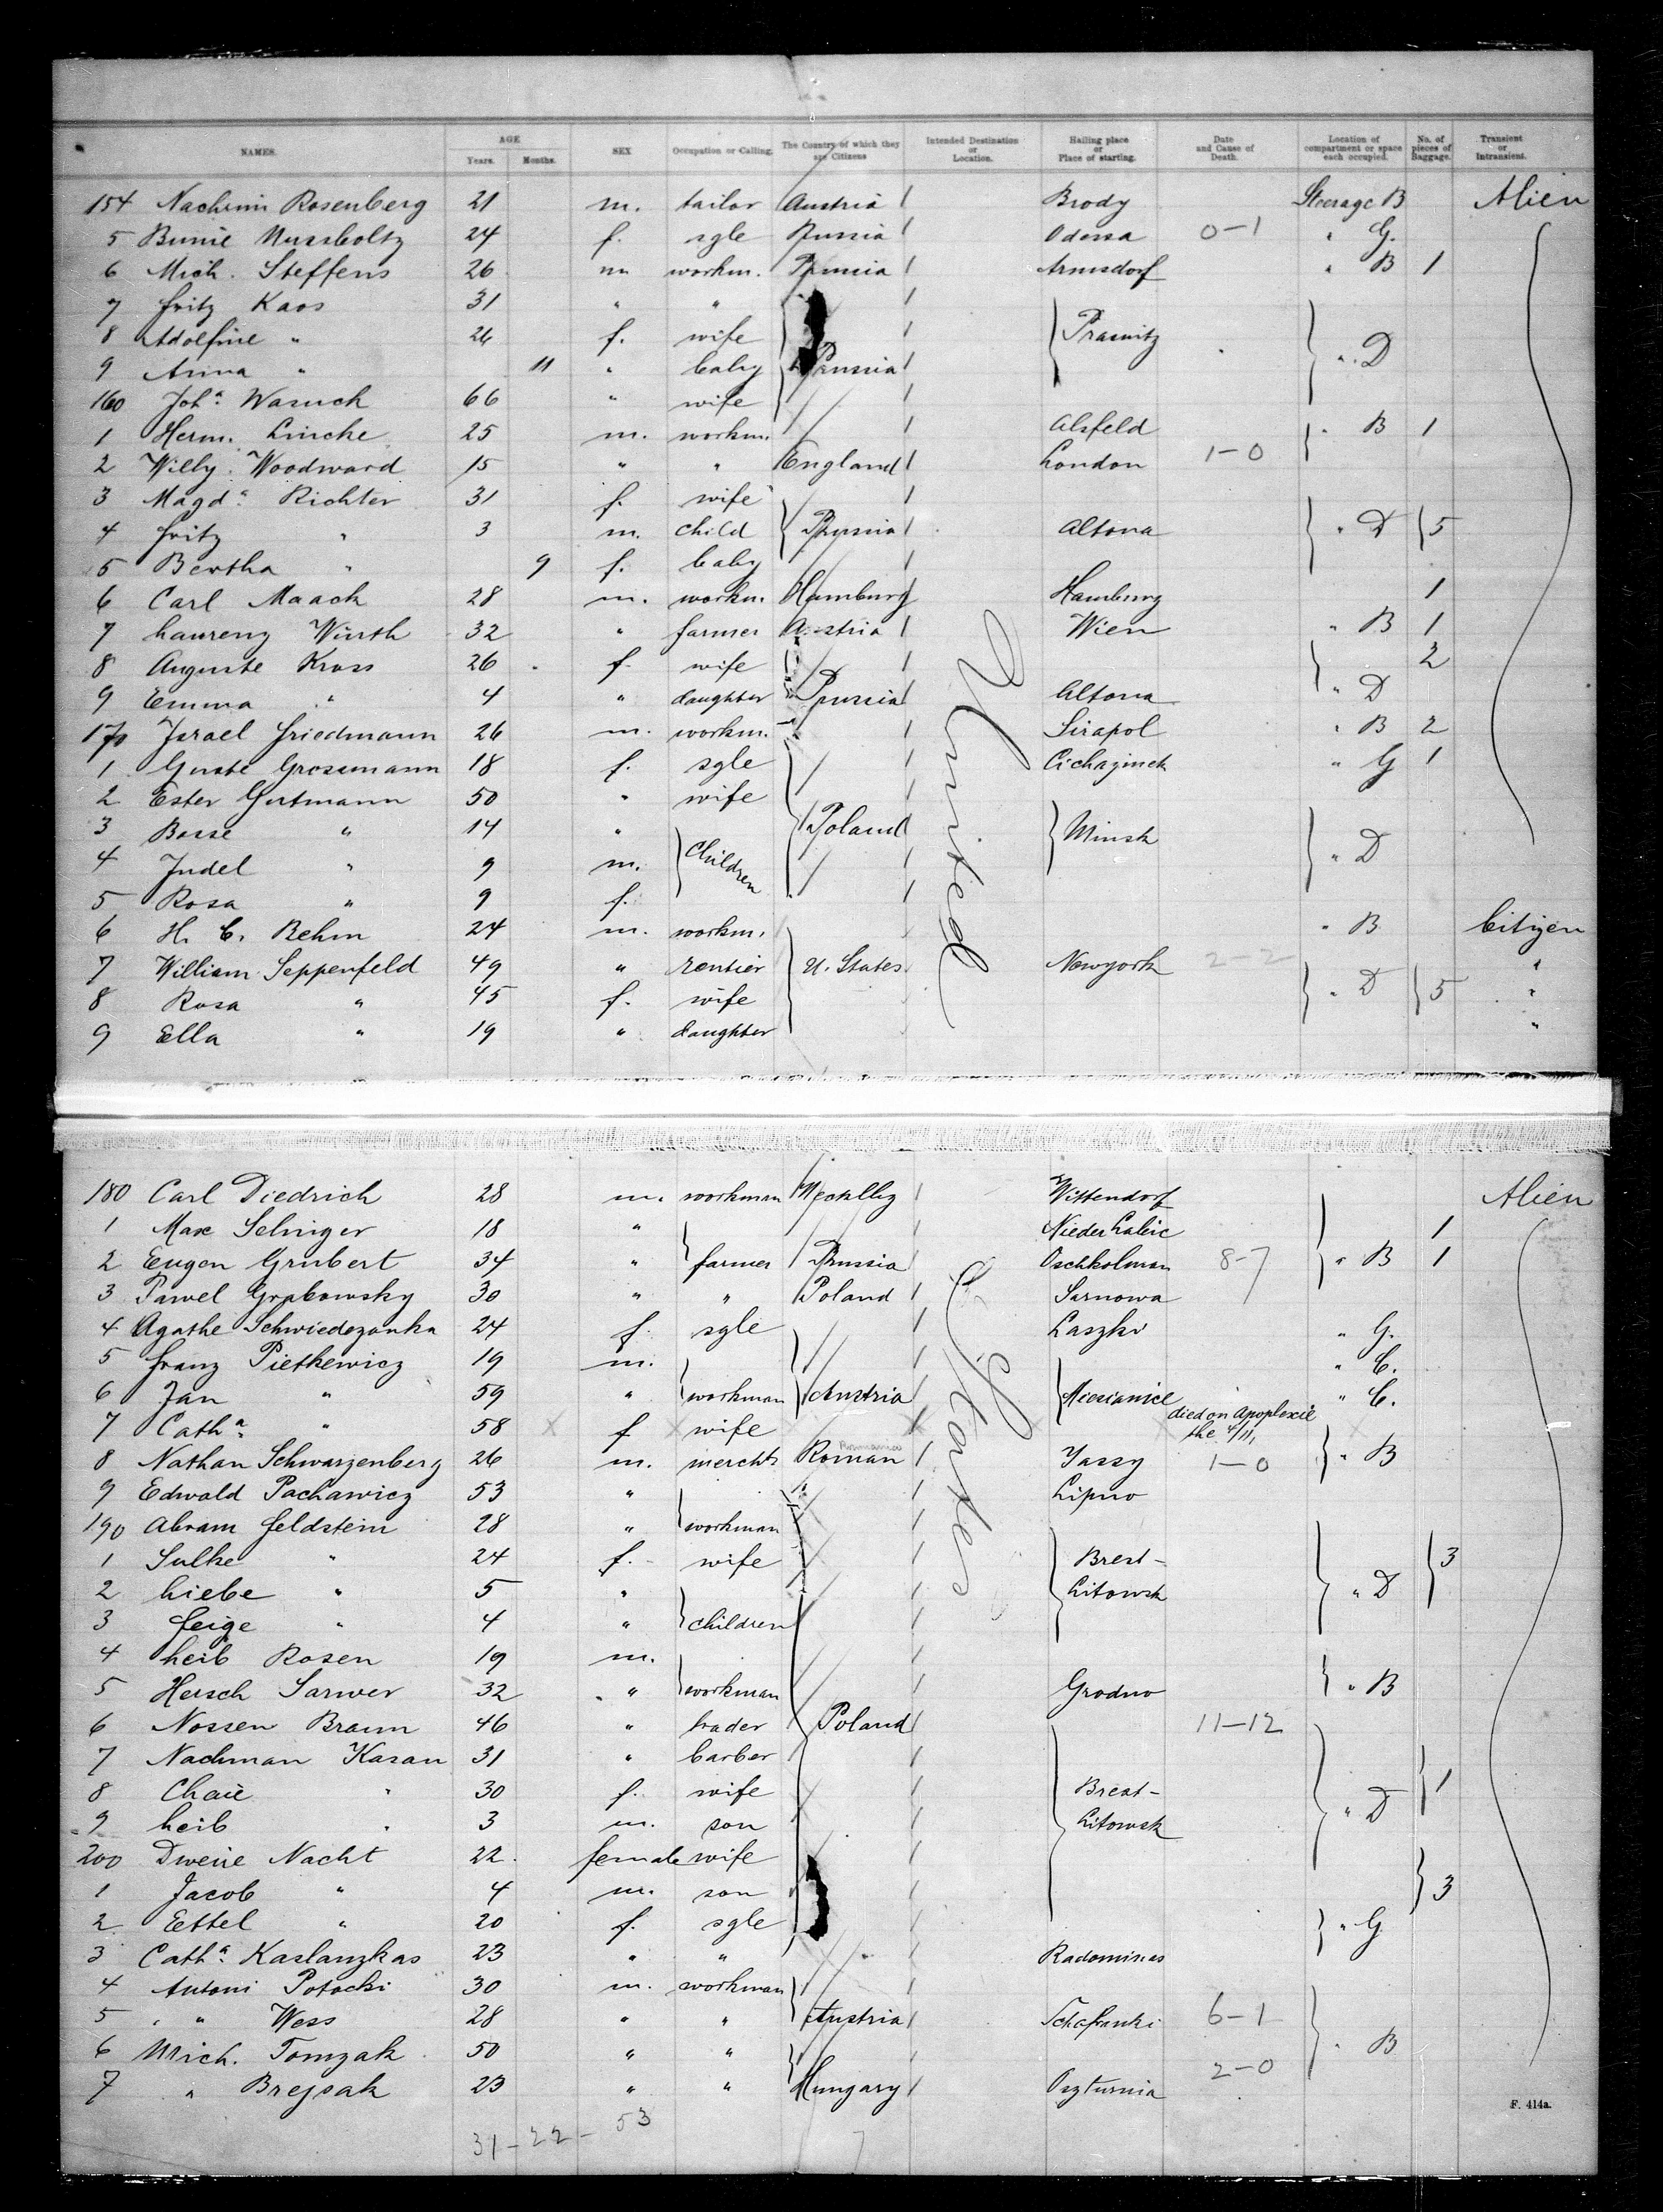 NAMES. AGE Years. Months. SEX Occupation or Calling. The Country of which they are Citizens Intended Destination or Location. Hailing place or Place of starting. Date and Cause of Death. Location of compartment or space each occupied. No. of pieces of Baggage. Transient or Intransient.
154 Nachmi Rosenberg 21 m. tailor Austria Brody Steerage B Alien
5 Bunie Nussboltz 24 f. sgle Russia Odessa 0-1 " G.
6 Mich. Steffens 26 m workm. Prussia Arnsdorf " B 1
7 Fritz Kaos 31 " "
8 Adolfine " 26 f. wife Prausnitz
9 Anna " 11 " baby Prussia " D
160 Joha. Wasuch 66 " wife
1 Herm. Lincke 25 m. workm. Alsfeld " B 1
2 Willy Woodward 15 " " England London 1-0
3 Magda. Richter 31 f. wife
4 Fritz " 3 m. child Prussia Altona " D 5
5 Bertha " 9 f. baby
6 Carl Maack 28 m. workm. Hamburg Hamburg 1
7 Laurenz Wirth 32 " farmer Austria Wien " B 1
8 Auguste Kross 26 f. wife 2
9 Emma " 4 " daughter Prussia Altona " D
170 Israel Friedmann 26 m. workm. Sirapol " B 2
1 Guste Grossmann 18 f. sgle Cichazinek " G 1
2 Ester Gurtmann 50 " wife
3 Basse " 14 " Children Poland Minsk
4 Judel " 9 m. " D
5 Rosa " 9 f.
6 H. C. Behm 24 m. workm. " B Citizen
7 William Seppenfeld 49 " rentier U. States Newyork 2-2 "
8 Rosa " 45 f. wife " D 5 "
9 Ella " 19 " daughter "
United
180 Carl Diedrich 28 m. workman Mecklbg Wittendorf Alien
1 Max Selniger 18 " 1
2 Eugen Grubert 34 " farmer Prussia Oschkolman 8-7 " B 1
3 Pawel Grabowsky 30 " " Poland Sarnowa
4 Agathe Schwiedezonka 24 f. sgle Laszki " G.
5 Franz Pietkewicz 19 m. " C.
6 Jan " 59 " workman Austria " C.
7 Catha. " 58 f wife died on Apoplexie the 4/11,
8 Nathan Schwarzenberg 26 m. mercht Roman Romania Yassy 1-0 " B
9 Edwald Pachawicz 53 " Lipno
190 Abram Feldstein 28 " workman
1 Sulke " 24 f. wife Brest- 3
2 Liebe " 5 " Litowsk " D
3 Feige " 4 " children
4 Leib Rosen 19 m.
5 Hersch Sarwer 32 " workman Grodno " B
6 Nossen Braun 46 " trader Poland 11-12
7 Nachman Kasan 31 " barber
8 Chaie " 30 f. wife Brest- 1
9 Leib " 3 m. son Litowsk " D
200 Dweire Nacht 22. female wife
1 Jacob " 4 m. son 3
2 Ettel " 20 f. sgle " G
3 Catha. Kaslanzkas 23 " " Radominas
4 Antoni Potocki 30 m. workman
5 " Wess 28 " " Austria Tchafranki 6-1
6 Mich. Tomzak 50 " " " B
7 " Brejsak 23 " " Hungary Oszturnia 2-0
States
F. 414a.
31-22-53